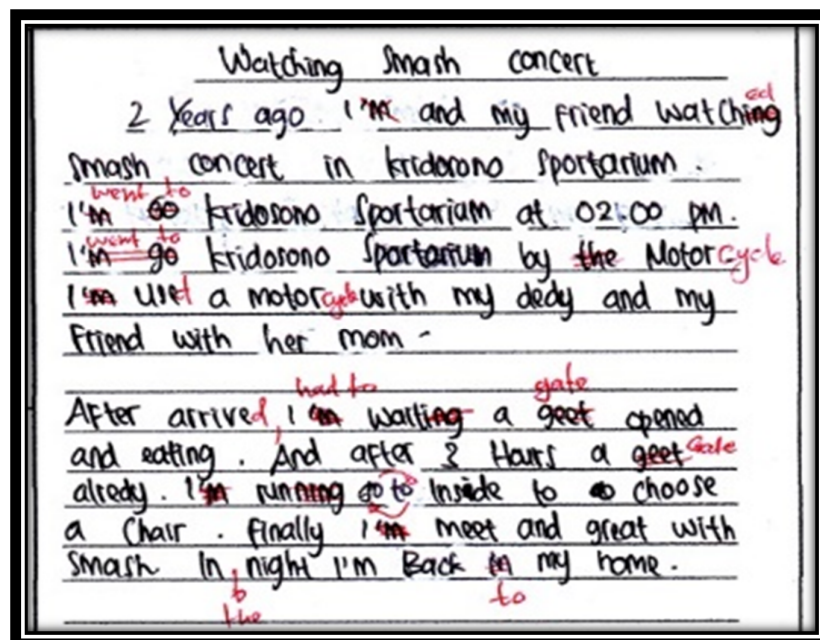 Watching Smash concert
ed
2 Years ago. I'm and my friend watching
smash concert in kridorono Sportarium.
went to
I'm Go kridosono Sportarium at 02.00 pm.
went to
I'm go kridosono Sportarium by the Motorcycle
I'm Used a motorcycle with my dedy and my
Friend with her mom -
had to gate
After arrived, I'm waiting a geet opened
and eating. And after 3 Hours a geet Gate
alredy. I'm running go to Inside to choose
a Chair. Finally I'm meet and great with
Smash In night I'm Back in my home.
the to